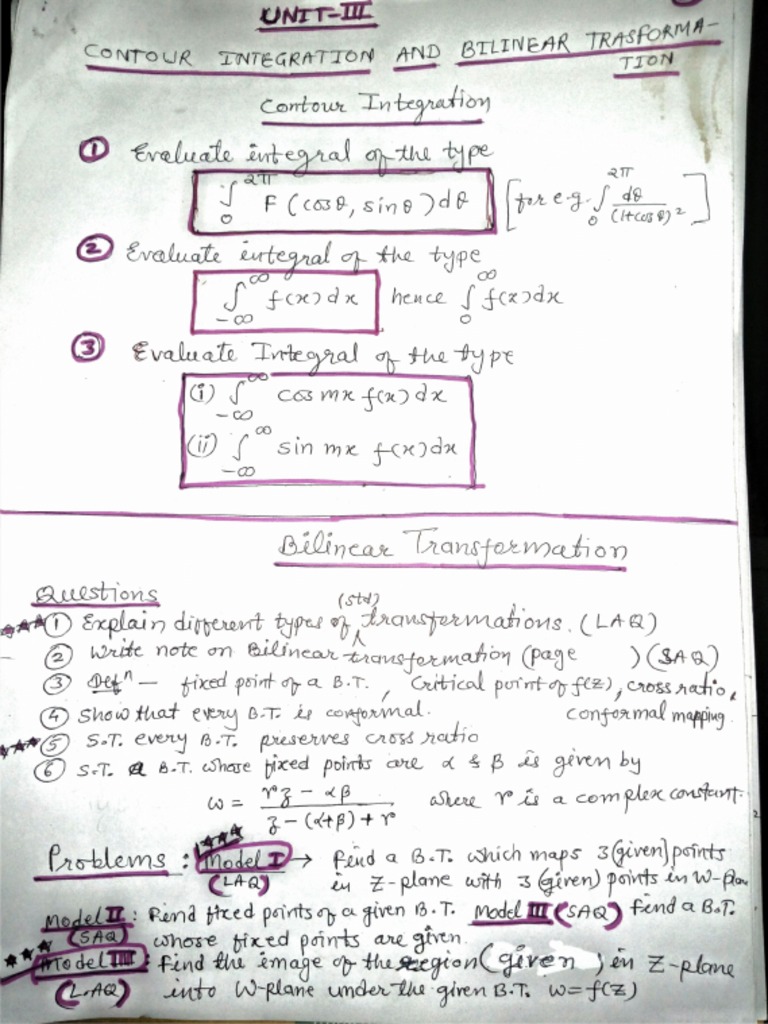 UNIT-III
CONTOUR INTEGRATION AND BILINEAR TRASFORMA-
TION
Contour Integration
① Evaluate integral of the type
∫₀^2π F (cosθ, sinθ) dθ [for e.g. ∫₀^2π dθ/(1+cosθ)²]
② Evaluate integral of the type
∫₋∞^∞ f(x) dx hence ∫₀^∞ f(x) dx
③ Evaluate Integral of the type
(i) ∫₋∞^∞ cos mx f(x) dx
(ii) ∫₋∞^∞ sin mx f(x) dx
Bilinear Transformation
Questions
*** ① Explain different types of (std) transformations. (LAQ)
② Write note on Bilinear transformation (page ) (SAQ)
③ Defⁿ — fixed point of a B.T., Critical point of f(z), cross ratio,
conformal mapping
④ Show that every B.T. is conformal.
*** ⑤ S.T. every B.T. preserves cross ratio
⑥ S.T. a B.T. whose fixed points are α & β is given by
w = (rz − αβ)/(z − (α+β) + r) where r is a complex constant.
Problems : *** Model I → find a B.T. which maps 3 (given) points
(LAQ) in Z-plane with 3 (given) points in W-plane
Model II : Find fixed points of a given B.T. Model III (SAQ) find a B.T.
(SAQ) whose fixed points are given
*** Model III : Find the image of the region (given) in Z-plane
(LAQ) into W-plane under the given B.T. w=f(z)